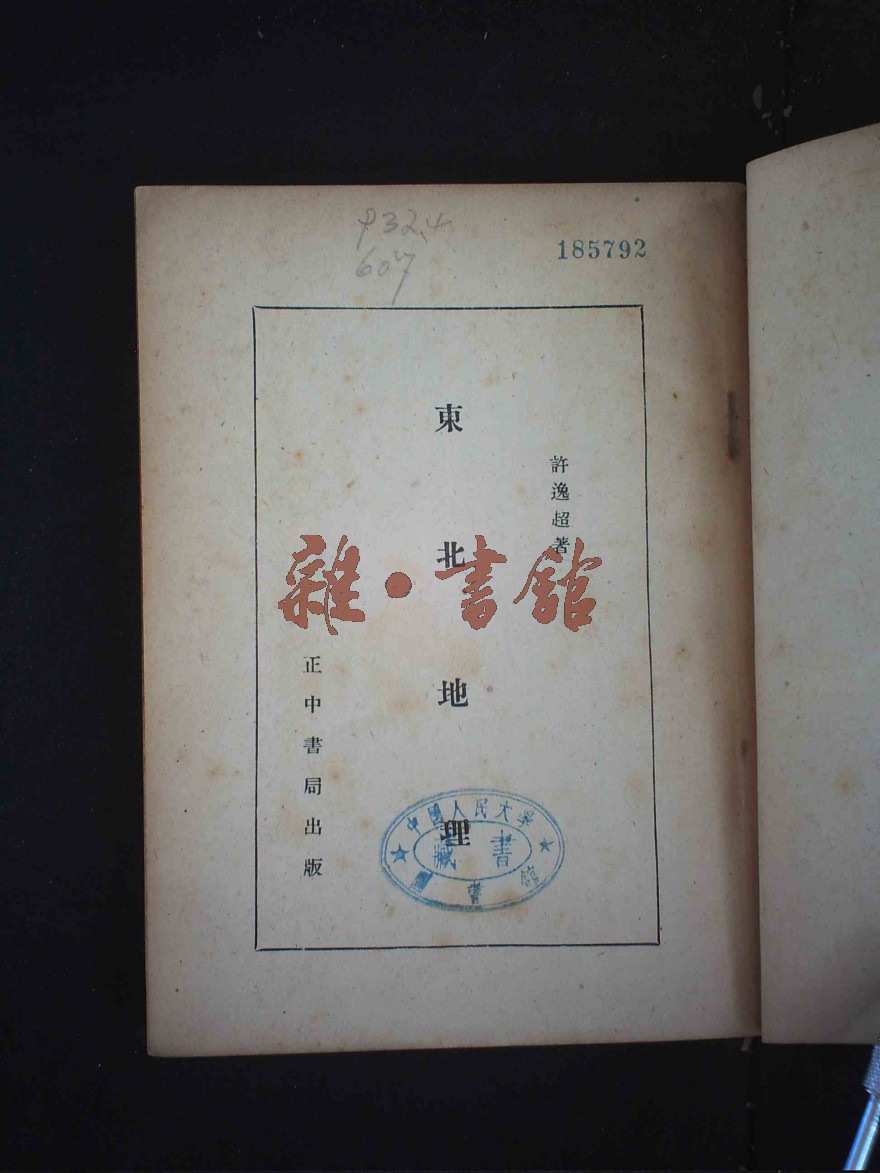 P32.4
607
185792
許逸超著
東北地理
正中書局出版
雜·書館
中國人民大學
藏書
圖書館